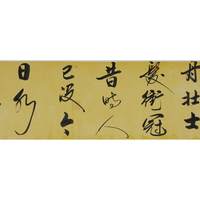 丹壯士
髮衝冠
昔時人
已没今
日水